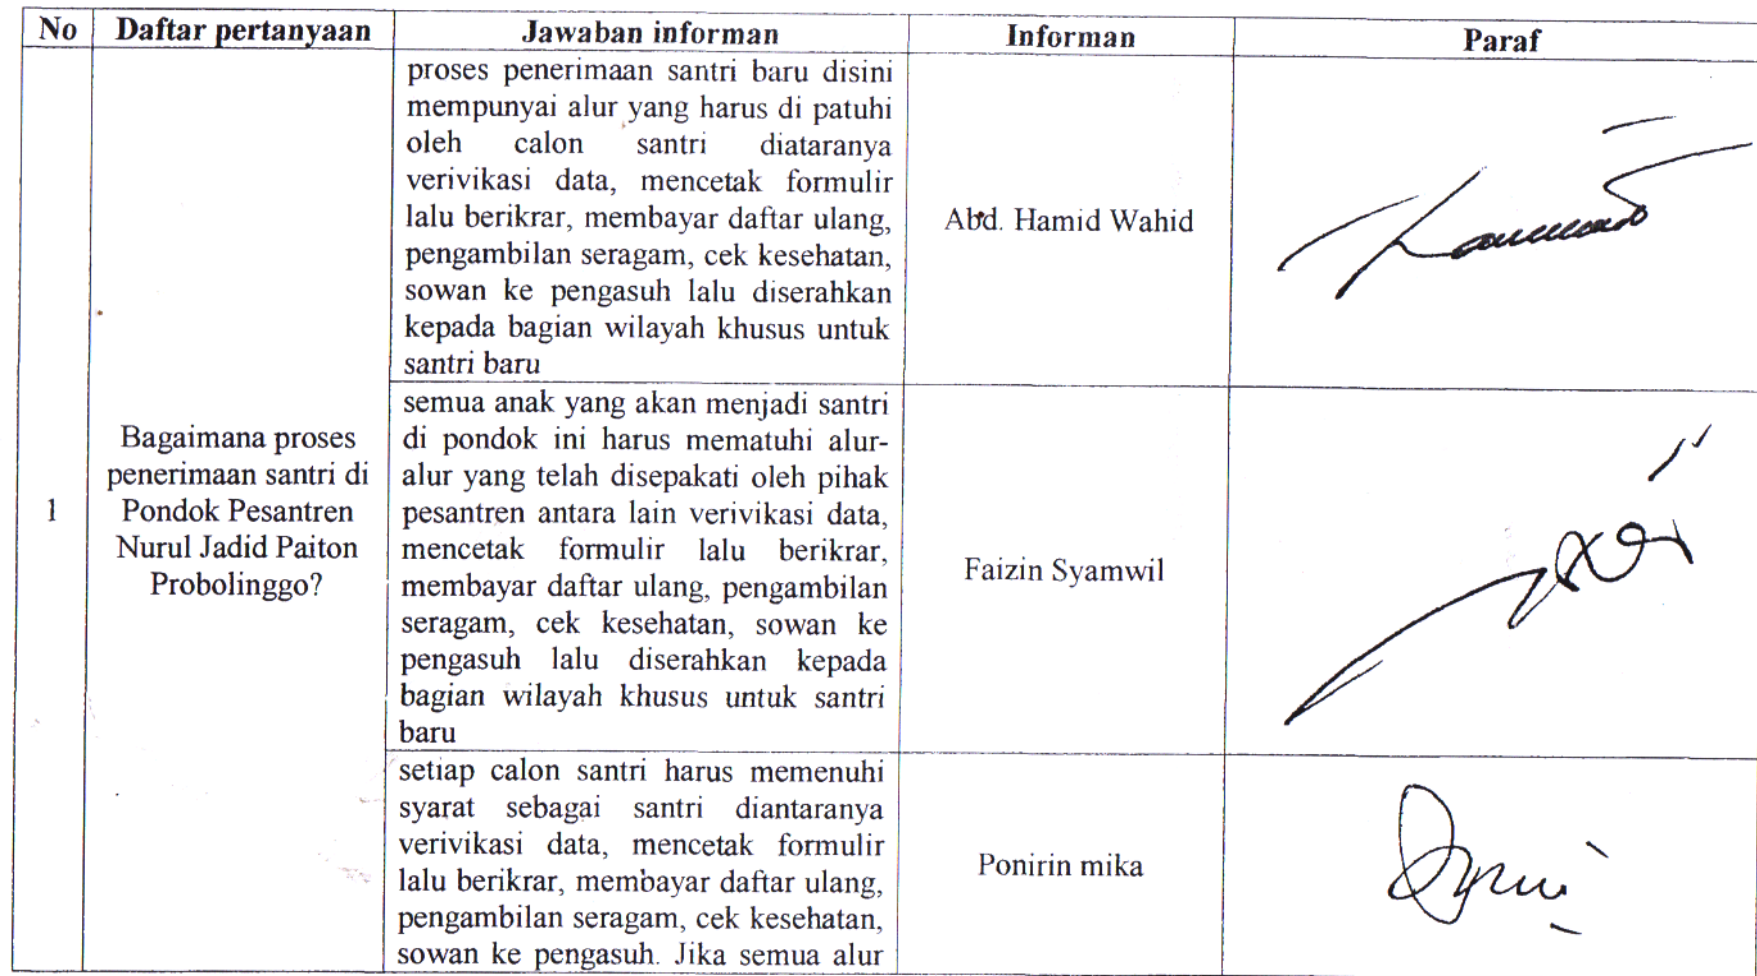 No Daftar pertanyaan Jawaban informan Informan Paraf
proses penerimaan santri baru disini
mempunyai alur yang harus di patuhi
oleh calon santri diataranya
verivikasi data, mencetak formulir
lalu berikrar, membayar daftar ulang,
pengambilan seragam, cek kesehatan,
sowan ke pengasuh lalu diserahkan
kepada bagian wilayah khusus untuk
santri baru
Abd. Hamid Wahid
1
Bagaimana proses
penerimaan santri di
Pondok Pesantren
Nurul Jadid Paiton
Probolinggo?
semua anak yang akan menjadi santri
di pondok ini harus mematuhi alur-
alur yang telah disepakati oleh pihak
pesantren antara lain verivikasi data,
mencetak formulir lalu berikrar,
membayar daftar ulang, pengambilan
seragam, cek kesehatan, sowan ke
pengasuh lalu diserahkan kepada
bagian wilayah khusus untuk santri
baru
Faizin Syamwil
setiap calon santri harus memenuhi
syarat sebagai santri diantaranya
verivikasi data, mencetak formulir
lalu berikrar, membayar daftar ulang,
pengambilan seragam, cek kesehatan,
sowan ke pengasuh. Jika semua alur
Ponirin mika